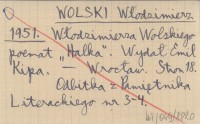 WOLSKI Włodzimierz
1951. Włodzimierza Wolskiego
poemat "Halka". Wydał Emil
Kipa. — Wrocław. Stron 18.
Odbitka z Pamiętnika
Literackiego nr 3-4.